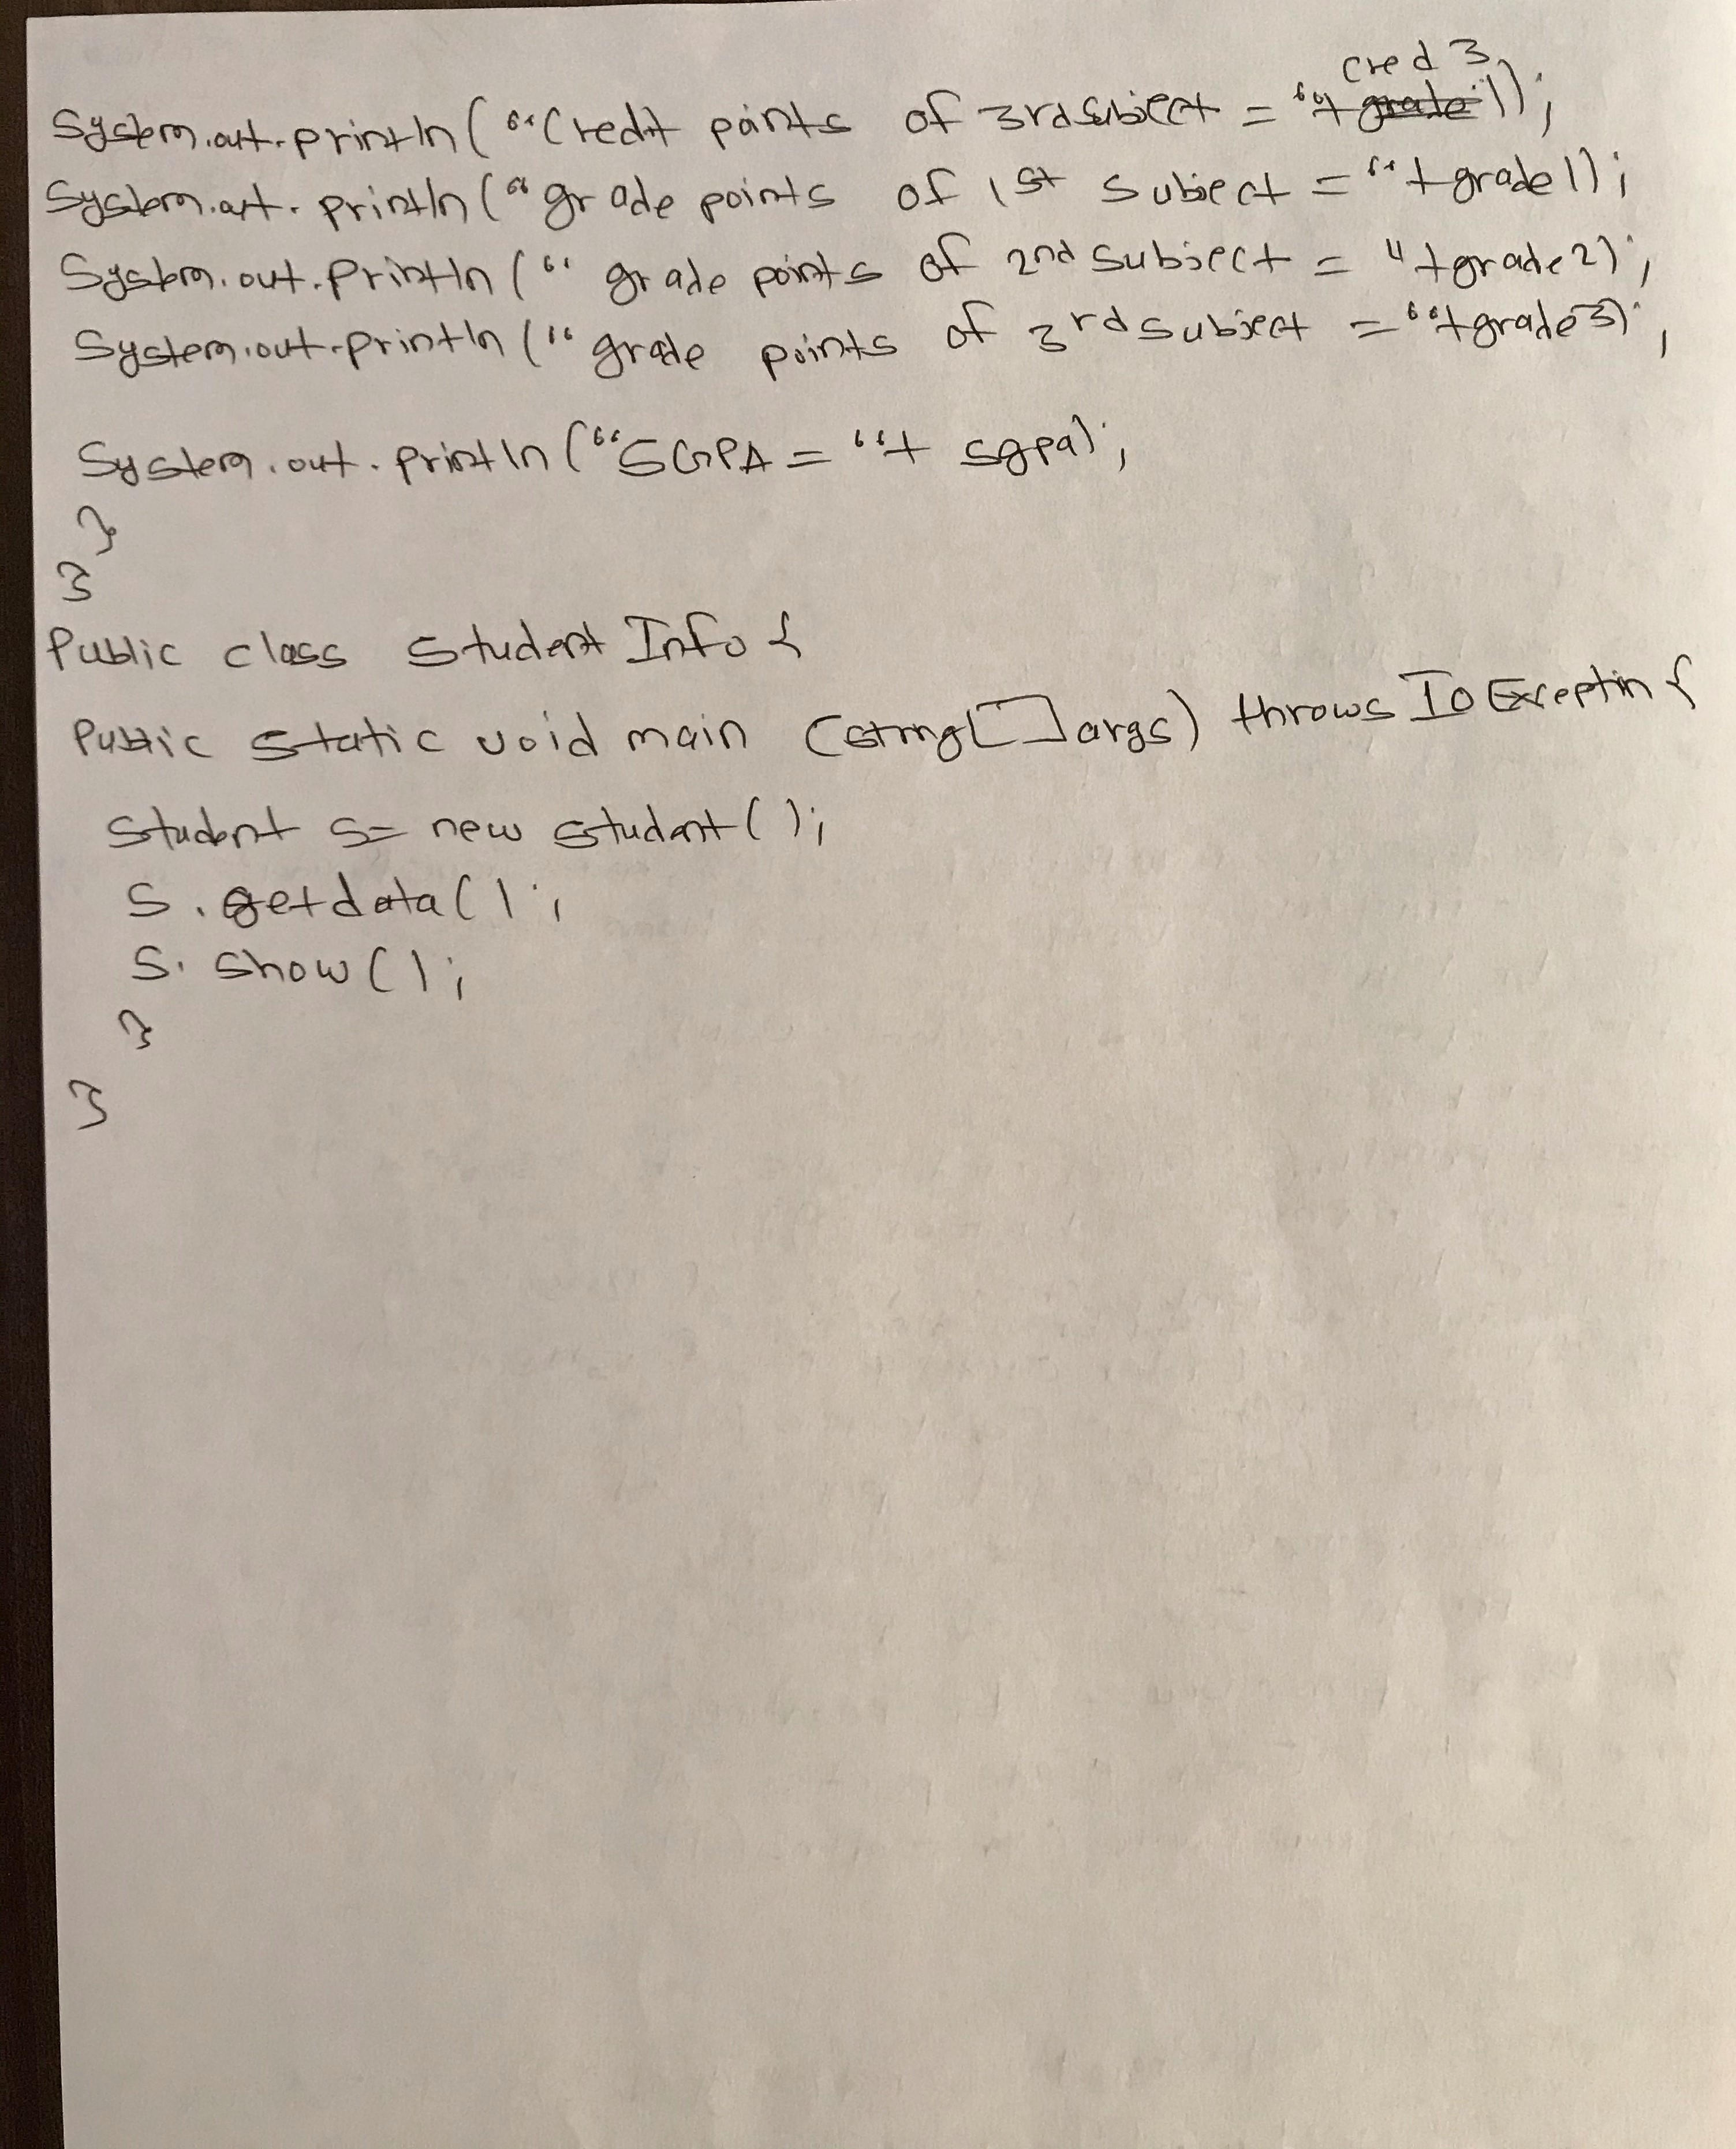 System.out.println("Credit points of 3rd Subject = "+ cred 3);
System.out.println("grade points of 1st subject = "+grade1);
System.out.println(" grade points of 2nd subject = "+grade2);
System.out.println("grade points of 3rd subject = "+grade3);
System.out.println("SGPA = "+ sgpa);
}
}
Public class Student Info {
Public static void main (string[] args) throws IO Exceptin {
Student s= new student();
S.getdata();
S. show();
}
}